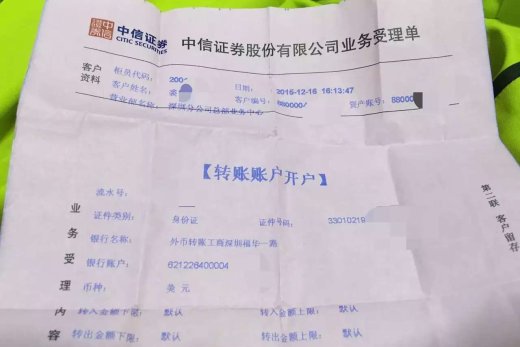 中信证券
CITIC SECURITIES
中信证券股份有限公司业务受理单
客户资料
柜员代码: 200
客户姓名:
日期: 2015-12-16 16:13:47
客户编号: 880000
资产账号: 88000
营业部名称: 深圳分公司总部业务中心
【转账账户开户】
流水号:
证件类别: 身份证
证件号码: 33010219
银行名称: 外币转账工商深圳福华一路
银行账户: 621226400004
币种: 美元
转入金额下限: 默认
转入金额上限: 默认
转出金额下限: 默认
转出金额上限: 默认
业务受理内容
第二联 客户留存